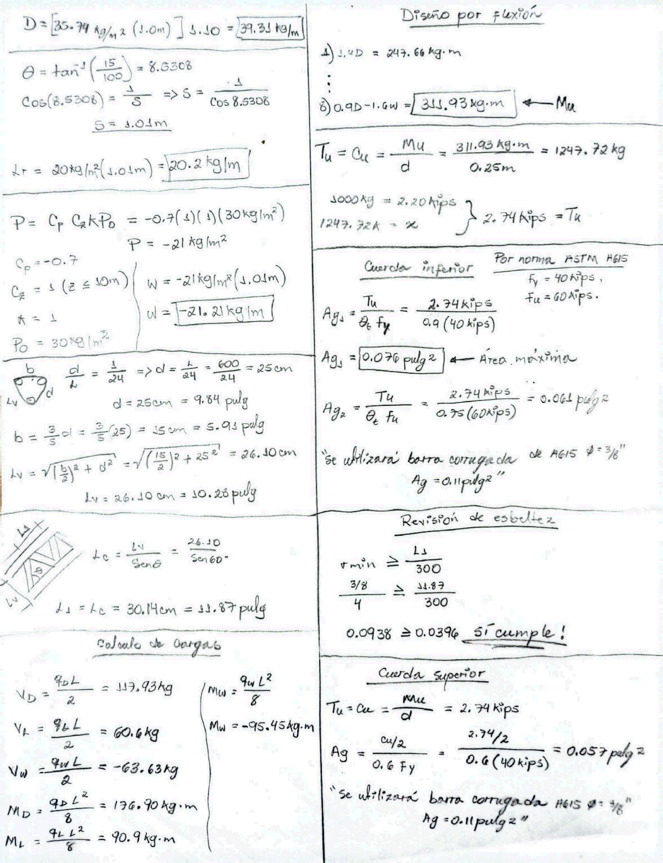 D = [35.74 kg/m x (1.0m)] 1.10 = 39.31 kg/m
θ = tan⁻¹ (15/100) = 8.5308
Cos(8.5308) = 1/S => S = 1/Cos 8.5308
S = 1.01m
Lr = 20kg/m² (1.01m) = 20.2 kg/m
P = Cp Cz K Po = -0.7(1)(1)(30kg/m²)
P = -21 kg/m²
Cp = -0.7
Cz = 1 (z ≤ 10m)
K = 1
Po = 30kg/m²
W = -21kg/m² (1.01m)
W = -21.21kg/m
b
d
Lv
d/L = 1/24 => d = L/24 = 600/24 = 25cm
d = 25cm = 9.84 pulg
b = 3/5 d = 3/5(25) = 15cm = 5.91 pulg
Lv = √((b/2)² + d²) = √((15/2)² + 25²) = 26.10cm
Lv = 26.10cm = 10.28pulg
L1
Lv
Lc = Lv/Senθ = 26.10/Sen60°
L1 = Lc = 30.14cm = 11.87 pulg
Calculo de Cargas
VD = qD L/2 = 117.93kg
VL = qL L/2 = 60.6kg
Vw = qw L/2 = -63.63kg
MD = qD L²/8 = 176.90 kg·m
ML = qL L²/8 = 90.9 kg·m
Mw = qw L²/8
Mw = -95.45kg·m
Diseño por flexión
1) 1.4D = 247.66 kg·m
⋮
6) 0.9D-1.6W = 311.93 kg·m ← Mu
Tu = Cu = Mu/d = 311.93 kg·m/0.25m = 1247.72 kg
1000kg = 2.20kips
1247.72k = x
} 2.74 kips = Tu
Cuerda inferior
Por norma ASTM A615
fy = 40kips.
fu = 60kips.
Ag1 = Tu/Øt fy = 2.74 kips/0.9(40kips)
Ag1 = 0.076 pulg² ← Área máxima
Ag2 = Tu/Øt fu = 2.74 kips/0.75(60kips) = 0.061 pulg²
"se utilizará barra corrugada de A615 Ø=3/8"
Ag = 0.11pulg²"
Revisión de esbeltez
rmin ≥ L1/300
3/8/4 ≥ 11.87/300
0.0938 ≥ 0.0396 Sí cumple!
Cuerda superior
Tu = Cu = Mu/d = 2.74 kips
Ag = Cu/2/0.6 Fy = 2.74/2/0.6(40kips) = 0.057 pulg²
"se utilizará barra corrugada A615 Ø=3/8"
Ag = 0.11pulg²"